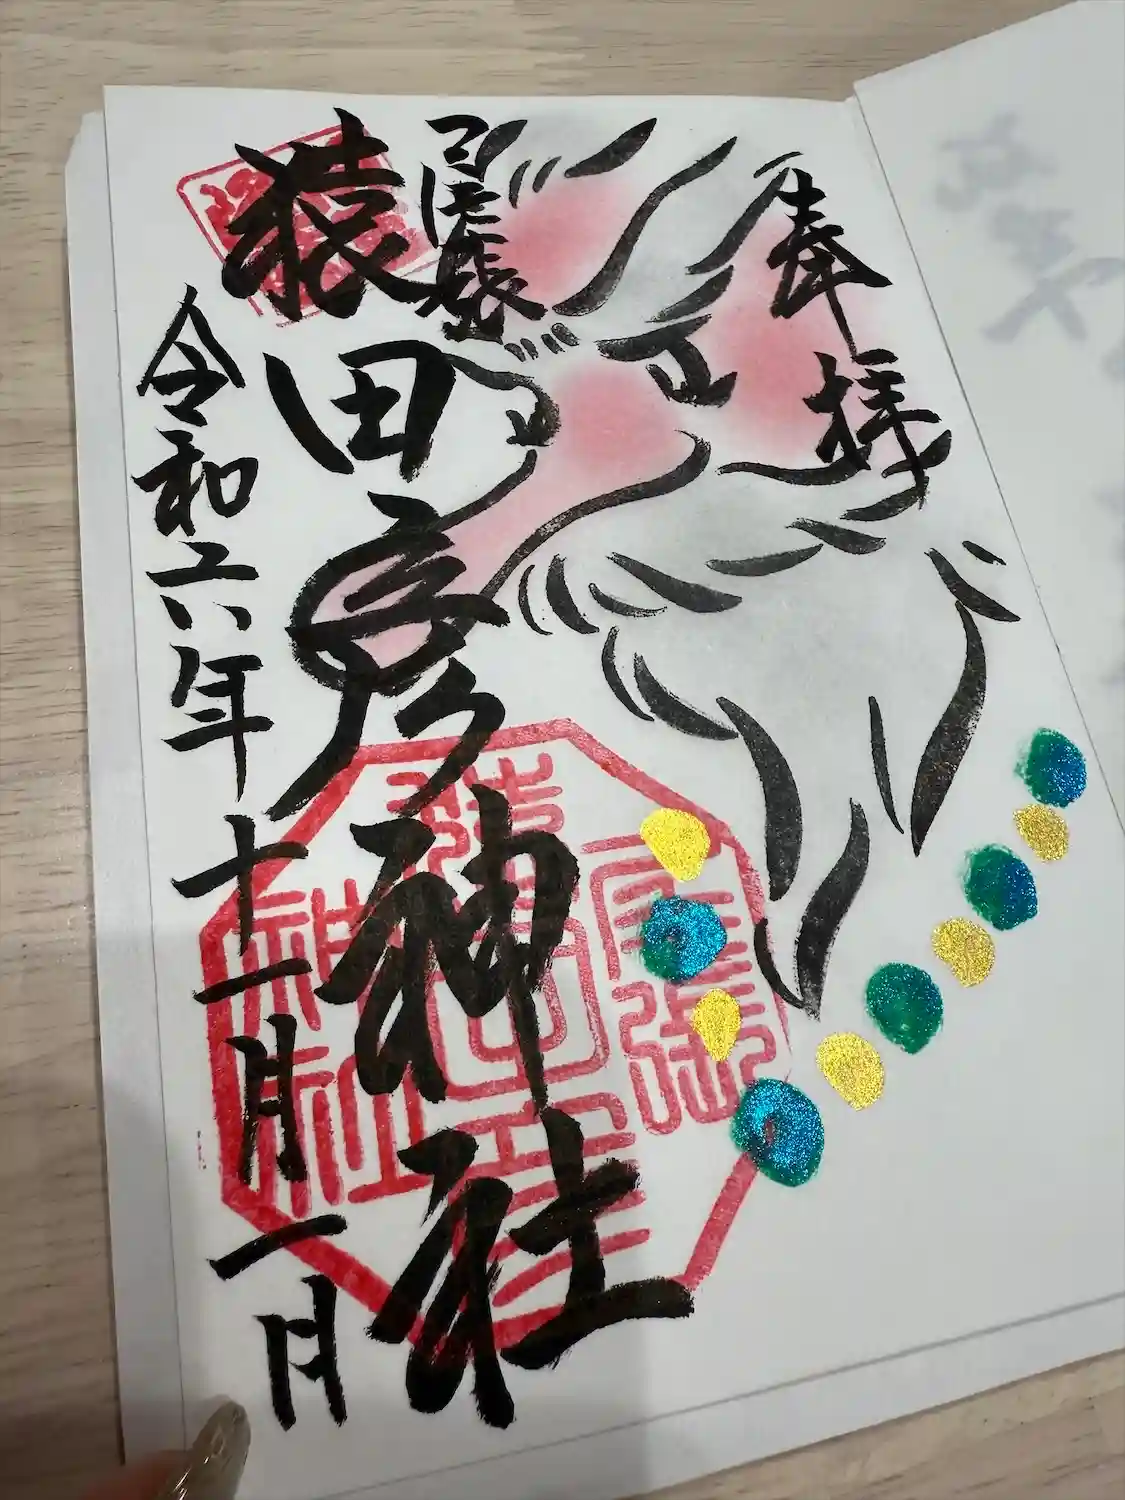 奉拝
尾張
猿田彦神社
令和六年十一月一日
尾張
猿田彦
神社